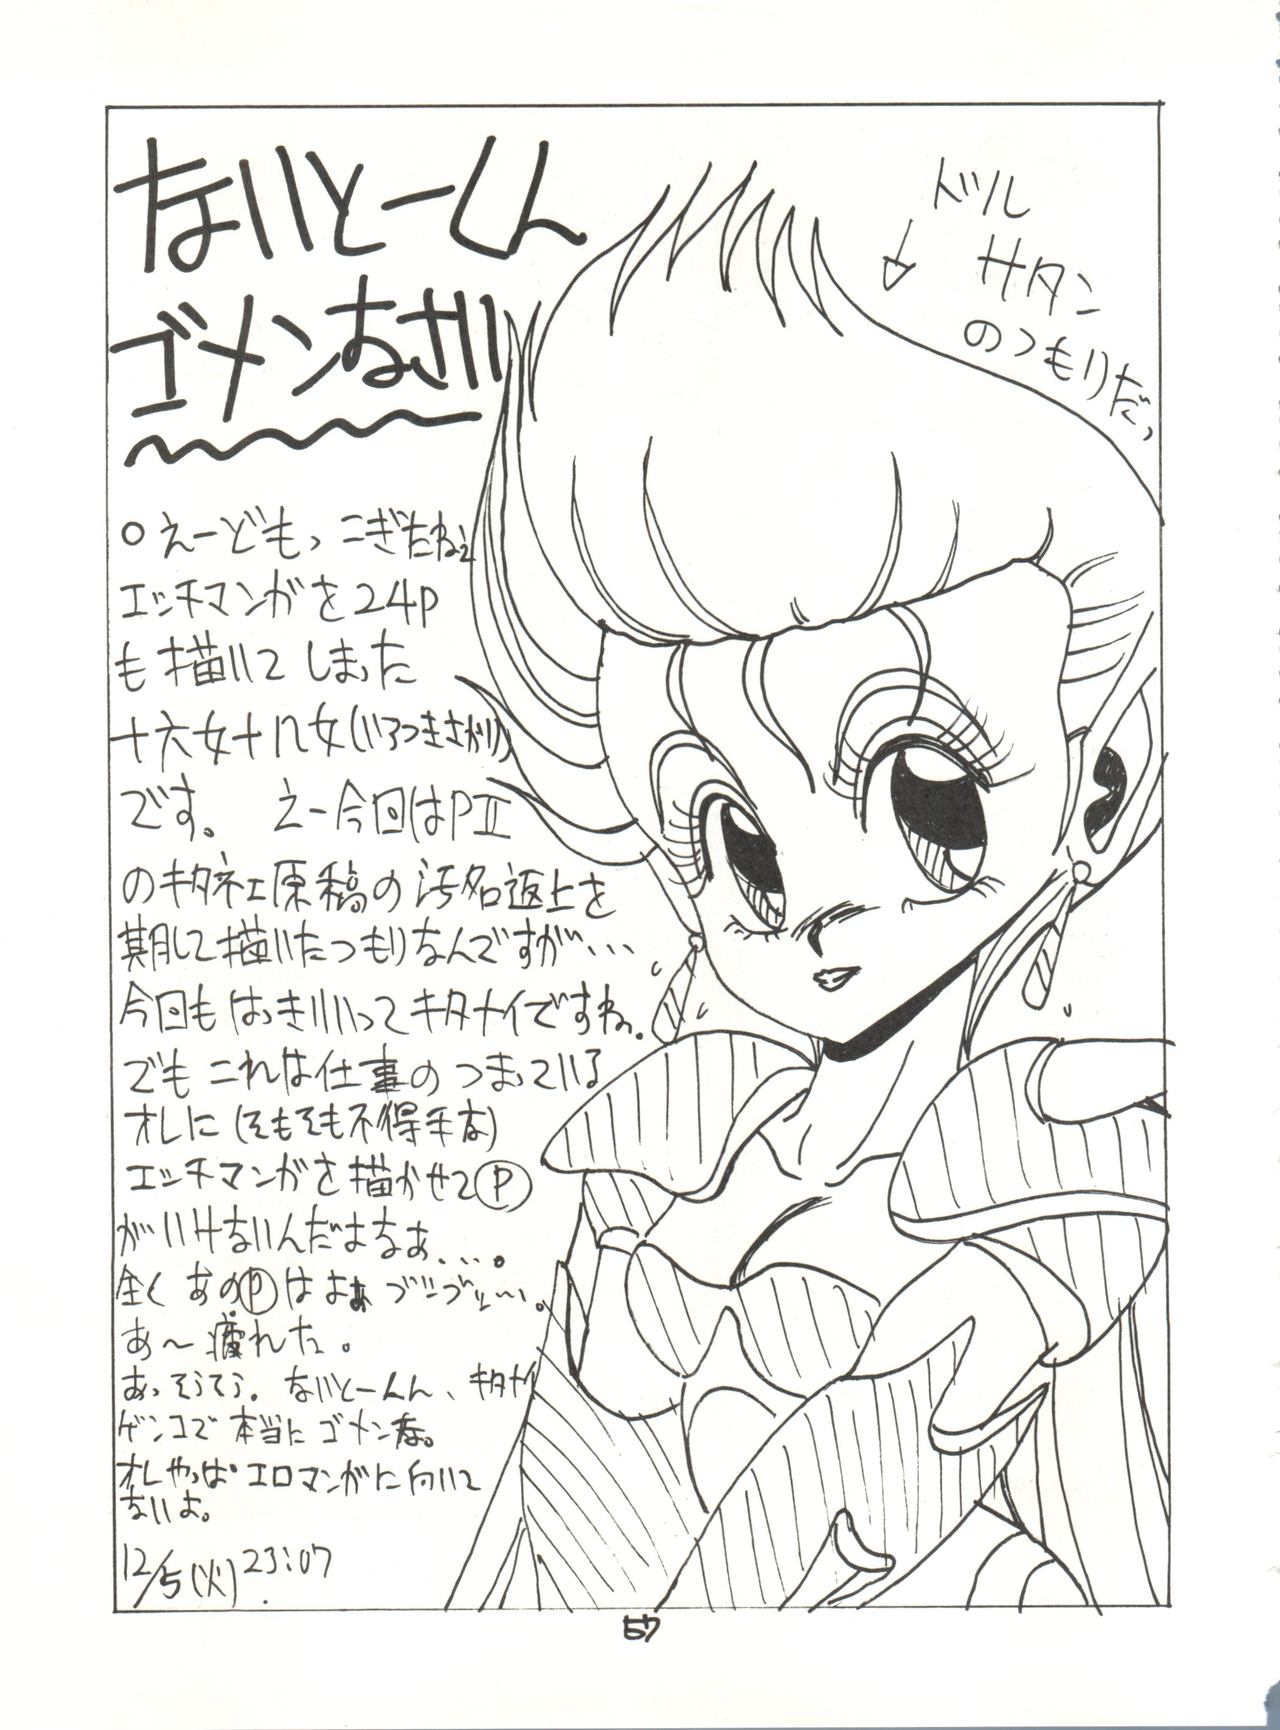 ないとーくん
ゴメンなさい
ドツル
サタン
のつもりだっ
○えーどもっ こぎたねェ
エッチマンガを24P
も描いて しまった
十六女十八女(いろつきさがり)
です。 えー今回はPⅡ
のキタネェ原稿の汚名返上を
期して描いたつもりなんですが…
今回も はっきりいって キタナイですねっ。
でも これは仕事の つまっている
オレに (そもそも不得手な)
エッチマンガを描かせてⓅ
がいけないんだよなぁ…。
全く あのⓅはよぉ ブツブツ…。
あ〜疲れた。
あっ そうそう。 ないとーくん、キタナイ
ゲンコで 本当に ゴメンな。
オレやっぱ エロマンガに向いて
ないよ。
12/5(火) 23:07
57